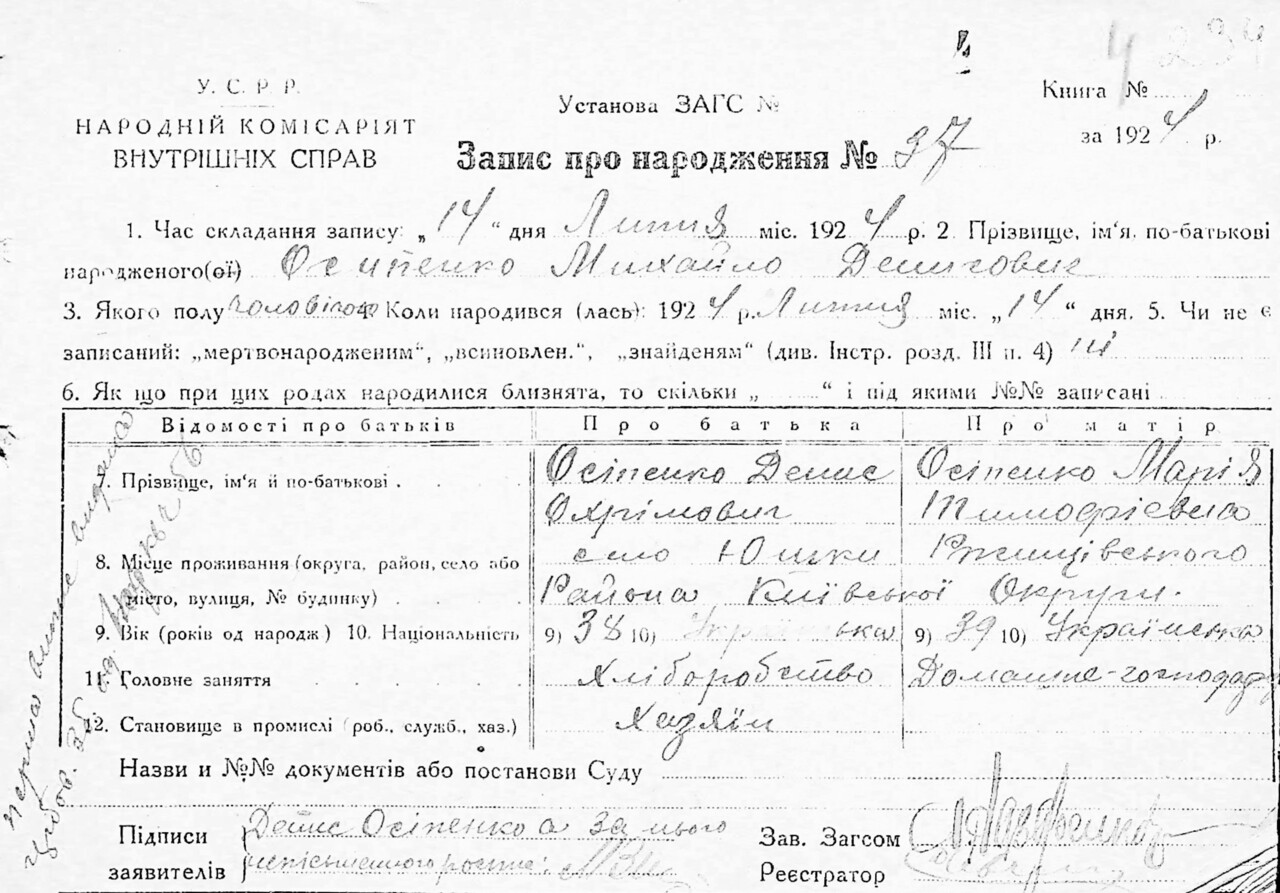 4 234
У. С. Р. Р.
НАРОДНІЙ КОМІСАРІЯТ
ВНУТРІШНІХ СПРАВ
Установа ЗАГС №
Книга №
за 1924 р.
Запис про народження № 37
1. Час складання запису: „14“ дня Липня міс. 1924 р. 2. Прізвище, ім'я, по-батькові
народженого(ої) Осипенко Михайло Денисович
3. Якого полу чоловічого 4. Коли народився (лась): 1924 р. Липня міс. „14“ дня. 5. Чи не є
записаний: „мертвонародженим“, „всиновлен.“, „знайденям“ (див. Інстр. розд. III п. 4) ні
6. Як що при цих родах народилися близнята, то скільки „ “ і під якими №№ записані
Відомості про батьків Про батька Про матір
7. Прізвище, ім'я й по-батькові . Осіпенко Денис Осіпенко Марія
Охрімович Тимофієвна
8. Місце проживання (округа, район, село або село Юшки Ржищівського
місто, вулиця, № будинку) Района Київської Округи.
9. Вік (років од народж) 10. Національність 9) 38 10) Українська 9) 39 10) Українська
11. Головне заняття Хліборобство Домашнє-господар
12. Становище в промислі (роб., служб., хаз.) Хазяїн
Назви и №№ документів або постанови Суду
Підписи Денис Осіпенко а за нього
заявителів неписьменного
Зав. Загсом
Реєстратор